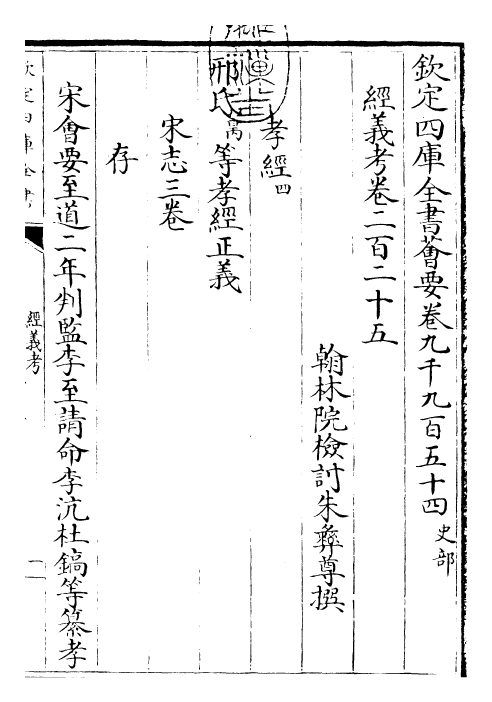 欽定四庫全書薈要卷九千九百五十四 史部
經義考卷二百二十五
翰林院檢討朱彝尊撰
孝經四
邢氏昺等孝經正義
宋志三卷
存
宋會要至道二年判監李至請命李沆杜鎬等纂孝
欽定四庫全書
經義考